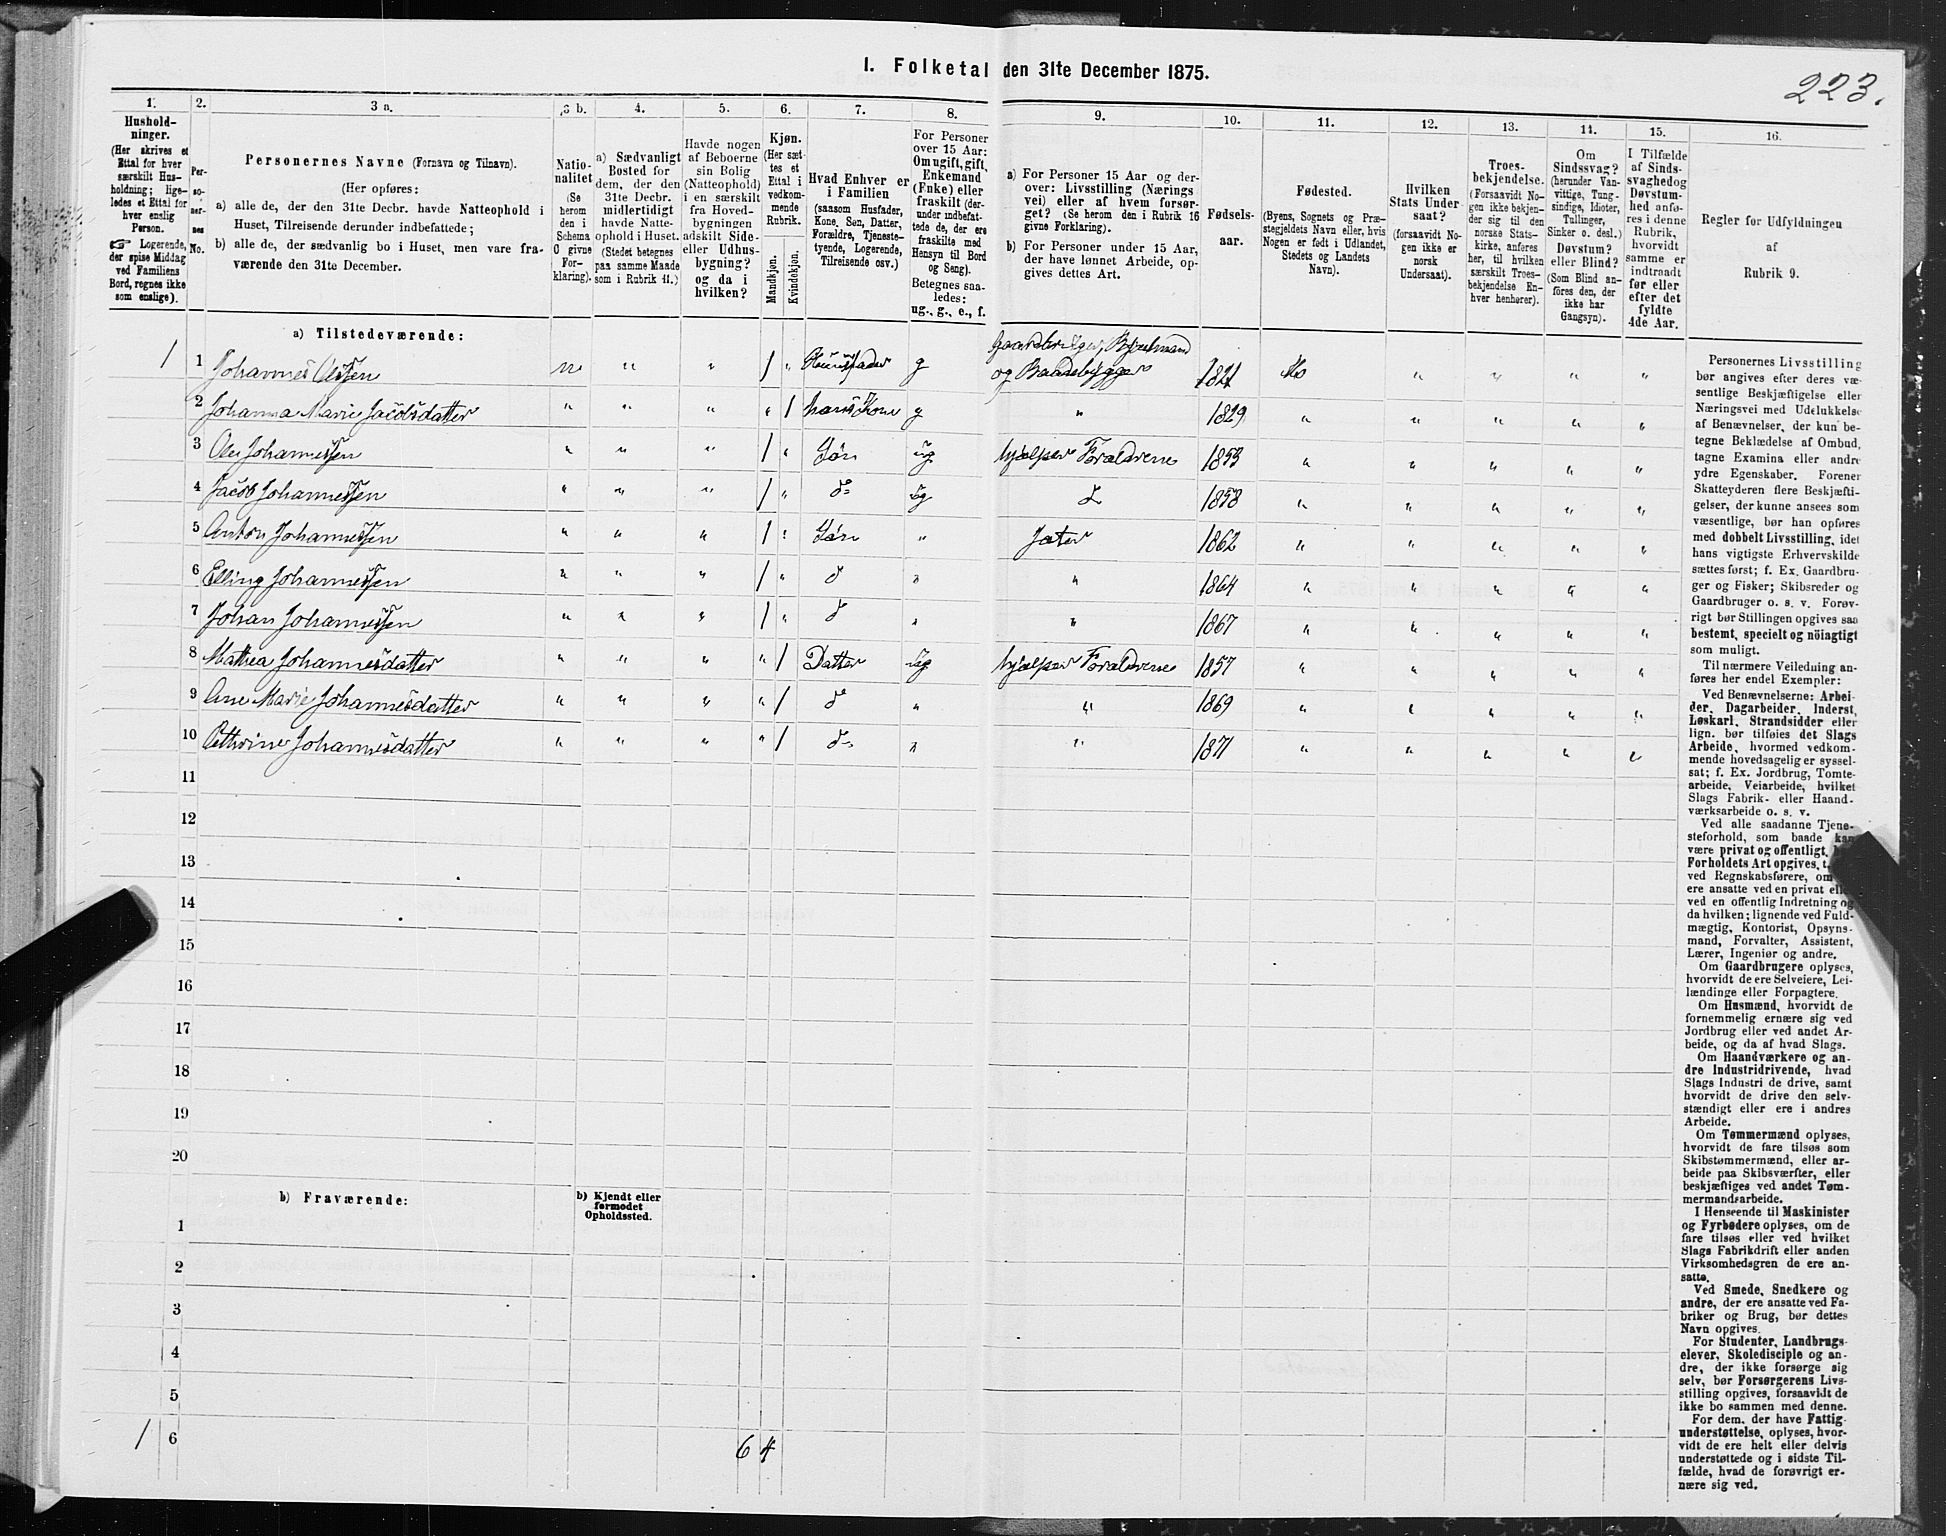 I. Folketal den 31te December 1875.
223.
1. 2. 3 a. 3 b. 4. 5. 6. 7. 8. 9. 10. 11. 12. 13. 14. 15. 16.
Hushold-
ninger.
(Her skrives et
Ettal for hver
særskilt Hus-
holdning; lige-
ledes et Ettal for
hver enslig
Person.
☞ Logerende,
der spise Middag
ved Familiens
Bord, regnes ikke
som enslige).
Per-
so-
ner-
nes
No.
Personernes Navne (Fornavn og Tilnavn).
(Her opføres:
a) alle de, der den 31te Decbr. havde Natteophold i
Huset, Tilreisende derunder indbefattede;
b) alle de, der sædvanlig bo i Huset, men vare fra-
værende den 31te December.
Natio-
nalitet
(Se
herom
den i
Schema
0 givne
For-
klaring).
a) Sædvanligt
Bosted for
dem, der den
31te Decbr.
midlertidigt
havde Natte-
ophold i Huset.
(Stedet betegnes
paa samme Maade
som i Rubrik 11.)
Havde nogen
af Beboerne
sin Bolig
(Natteophold)
i en særskilt
fra Hoved-
bygningen
adskilt Side-
eller Udhus-
bygning?
og da i
hvilken?
Kjøn.
(Her sæt-
tes et
Ettal i
vedkom-
mende
Rubrik.
Mandkjøn.
Kvindekjøn.
Hvad Enhver er
i Familien
(saasom Husfader,
Kone, Søn, Datter,
Forældre, Tjeneste-
tyende, Logerende,
Tilreisende osv.)
For Personer
over 15 Aar:
Om ugift, gift,
Enkemand
(Enke) eller
fraskilt (der-
under indbefat-
tede de, der ere
fraskilte med
Hensyn til Bord
og Seng).
Betegnes saa-
ledes:
ug., g., e., f.
a) For Personer 15 Aar og der-
over: Livsstilling (Nærings
vei) eller af hvem forsør-
get? (Se herom den i Rubrik 16
givne Forklaring).
b) For Personer under 15 Aar,
der have lønnet Arbeide, op-
gives dettes Art.
Fødsels-
aar.
Fødested.
(Byens, Sognets og Præ-
stegjeldets Navn eller, hvis
Nogen er født i Udlandet,
Stedets og Landets
Navn).
Hvilken
Stats Under-
saat?
(forsaavidt No-
gen ikke er
norsk
Undersaat).
Troes-
bekjendelse.
(Forsaavidt No-
gen ikke bekjen-
der sig til den
norske Stats-
kirke, anføres
her, til hvilken
særskilt Troes-
bekjendelse En-
hver henhører).
Om
Sindssvag?
(herunder Van-
vittige, Tung-
sindige, Idioter,
Tullinger,
Sinker o. desl.)
Døvstum?
eller Blind?
(Som Blind an-
føres den, der
ikke har
Gangsyn).
I Tilfælde
af Sinds-
svaghed og
Døvstum-
hed anfø-
res i denne
Rubrik,
hvorvidt
samme er
indtraadt
før eller
efter det
fyldte
4de Aar.
Regler for Udfyldningen
af
Rubrik 9.
a) Tilstedeværende:
1 1 Johannes Olssen n " " 1 " Huusfader g Gaardbruger, Bøxelmand
og Baadebygger 1821 Mo " " " "
2 Johanna Marie Jacobsdatter " " " " 1 hans Kone g " 1829 " " " " "
3 Ole Johannessen " " " 1 " Søn ug hjælper Forældrene 1853 " " " " "
4 Jacob Johannessen " " " 1 " do ug do 1858 " " " " "
5 Anton Johannessen " " " 1 " Søn " Jæter 1862 " " " " "
6 Elling Johannessen " " " 1 " do " " 1864 " " " " "
7 Johan Johannessen " " " 1 " do " " 1867 " " " " "
8 Mathea Johannesdatter " " " " 1 Datter ug hjælper Forældrene 1857 " " " " "
9 Ane Marie Johannesdatter " " " " 1 do " " 1869 " " " " "
10 Pethrine Johannesdatter " " " " 1 do " " 1871 " " " " "
11
12
13
14
15
16
17
18
19
20
b) Fraværende:
b) Kjendt eller
formodet
Opholdssted.
1
2
3
4
5
1 6 6 4
Personernes Livsstilling
bør angives efter deres væ-
sentlige Beskjæftigelse eller
Næringsvei med Udelukkelse
af Benævnelser, der kun be-
tegne Beklædelse af Ombud,
tagne Examina eller andre
ydre Egenskaber. Forener
Skatteyderen flere Beskjæfti-
gelser, der kunne ansees som
væsentlige, bør han opføres
med dobbelt Livsstilling, idet
hans vigtigste Erhvervskilde
sættes først; f. Ex. Gaardbru-
ger og Fisker; Skibsreder og
Gaardbruger o. s. v. Forøv-
rigt bør Stillingen opgives saa
bestemt, specielt og nöiagtigt
som muligt.
Til nærmere Veiledning an-
føres her endel Exempler:
Ved Benævnelserne: Arbei-
der, Dagarbeider, Inderst,
Løskarl, Strandsidder eller
lign. bør tilføies det Slags
Arbeide, hvormed vedkom-
mende hovedsagelig er syssel-
sat; f. Ex. Jordbrug, Tomte-
arbeide, Veiarbeide, hvilket
Slags Fabrik- eller Haand-
værksarbeide o. s. v.
Ved alle saadanne Tjene-
steforhold, som baade kan
være privat og offentligt,
Forholdets Art opgives, t.
ved Regnskabsførere, om
ere ansatte ved en privat eller
ved en offentlig Indretning og
da hvilken; lignende ved Fuld-
mægtig, Kontorist, Opsyns-
mand, Forvalter, Assistent,
Lærer, Ingeniør og andre.
Om Gaardbrugere oplyses,
hvorvidt de ere Selveiere, Lei-
lændinge eller Forpagtere.
Om Husmænd, hvorvidt de
fornemmelig ernære sig ved
Jordbrug eller ved andet Ar-
beide, og da af hvad Slags.
Om Haandværkere og an-
dre Industridrivende, hvad
Slags Industri de drive, samt
hvorvidt de drive den selv-
stændigt eller ere i andres
Arbeide.
Om Tømmermænd oplyses,
hvorvidt de fare tilsøs som
Skibstømmermænd, eller ar-
beide paa Skibsværfter, eller
beskjæftiges ved andet Tøm-
mermandsarbeide.
I Henseende til Maskinister
og Fyrbødere oplyses, om de
fare tilsøs eller ved hvilket
Slags Fabrikdrift eller anden
Virksomhedsgren de ere an-
satte.
Ved Smede, Snedkere og
andre, der ere ansatte ved Fa-
briker og Brug, bør dettes
Navn opgives.
For Studenter, Landbrugs-
elever, Skoledisciple og an-
dre, der ikke forsørge sig
selv, bør Forsørgerens Livs-
stilling opgives, forsaavidt de
ikke bo sammen med denne.
For dem, der have Fattig-
understøttelse, oplyses, hvor-
vidt de ere helt eller delvis
understøttede og i sidste Til-
fælde, hvad de forøvrigt er-
nære sig ved.